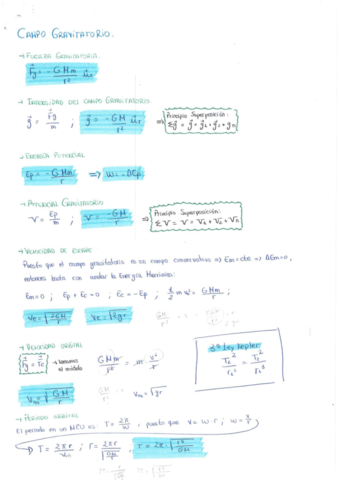 CAMPO GRAVITATORIO.
→ FUERZA GRAVITATORIA.
F⃗g = - GMm/r² u⃗r
→ INTENSIDAD DEL CAMPO GRAVITATORIO
g⃗ = F⃗g/m ; g⃗ = -GM/r² u⃗r ⇒ Principio Superposición:
Σg⃗ = g⃗ = g⃗1 + g⃗2 + g⃗n
→ ENERGÍA POTENCIAL
Ep = - GMm/r ⇒ W = -ΔEp
→ POTENCIAL GRAVITATORIO
V = Ep/m ; V = -GM/r ⇒ Principio Superposición:
ΣV = V = V1 + V2 + Vn
→ VELOCIDAD DE ESCAPE
Puesto que el campo gravitatorio es un campo conservativo ⇒ Em = cte ⇒ ΔEm = 0,
entonces basta con anular la Energía Mecánica:
Em = 0 ; Ep + Ec = 0 ; Ec = -Ep ; 1/2 m v² = GMm/r ;
Ve = √(2GM/r) Ve = √(2gr)
→ VELOCIDAD ORBITAL
F⃗g = F⃗c → tomamos
el módulo
GMm/r² = m v²/r
3ª Ley Kepler
T1²/r1³ = T2²/r2³
√(GM/r) Vo = √gr
→ PERIODO ORBITAL
El periodo en un MCU es T = 2π/w, puesto que v = w·r ; w = v/r
T = 2πr/vo ; T = 2πr/√(GM/r) ; T = 2π·√(r³/GM)